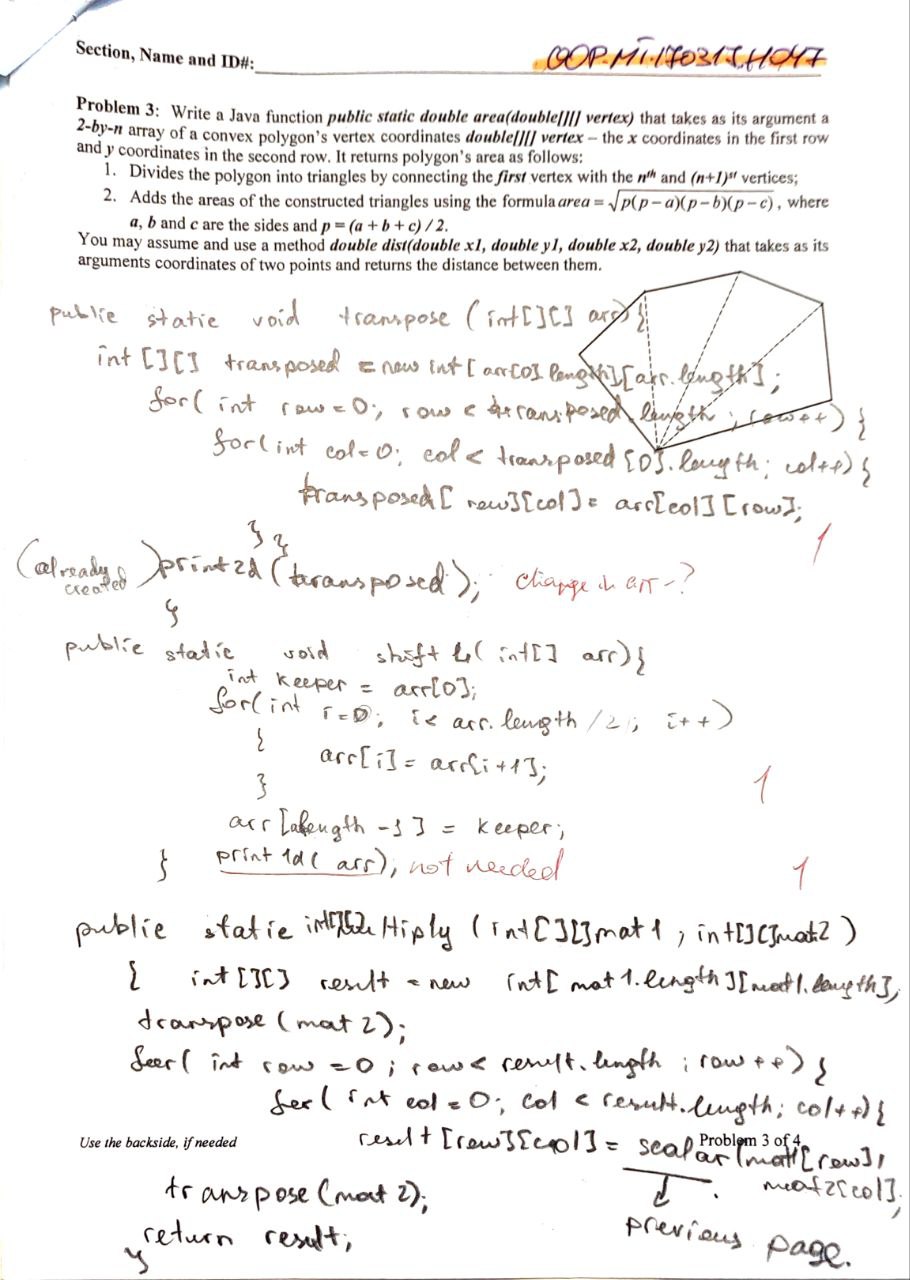 Section, Name and ID#: OOP.MT.170317.H047
Problem 3: Write a Java function public static double area(double[][] vertex) that takes as its argument a
2-by-n array of a convex polygon's vertex coordinates double[][] vertex – the x coordinates in the first row
and y coordinates in the second row. It returns polygon's area as follows:
1. Divides the polygon into triangles by connecting the first vertex with the nth and (n+1)st vertices;
2. Adds the areas of the constructed triangles using the formula area = √p(p – a)(p – b)(p – c) , where
a, b and c are the sides and p = (a + b + c) / 2.
You may assume and use a method double dist(double x1, double y1, double x2, double y2) that takes as its
arguments coordinates of two points and returns the distance between them.
public static void transpose (int[][] arr) {
int [][] transposed = new int [ arr[0].length][arr.length];
for( int row = 0; row < transposed.length ; row++) {
for(int col=0; col < transposed [0].length; col++) {
transposed[ row][col] = arr[col][row];
} }
1
(already created) print2d (transposed); change in arr -?
}
public static void shift ( int[] arr) {
int keeper = arr[0];
for(int i=0; i< arr.length /2 ; i++)
{
arr[i] = arr[i+1];
}
1
arr [length -1] = keeper;
} print 1d( arr); not needed
1
public static int[][] multiply (int[][]mat1 , int[][]mat2 )
{ int [][] result = new int[ mat1.length][mat1.length];
transpose (mat 2);
for( int row = 0 ; row < result.length ; row ++) {
for( int col = 0; col < result.length; col++) {
result [row][col] = scalar (mat1[row],
mat2[col];
Use the backside, if needed Problem 3 of 4
transpose (mat 2);
previous page.
return result;
}